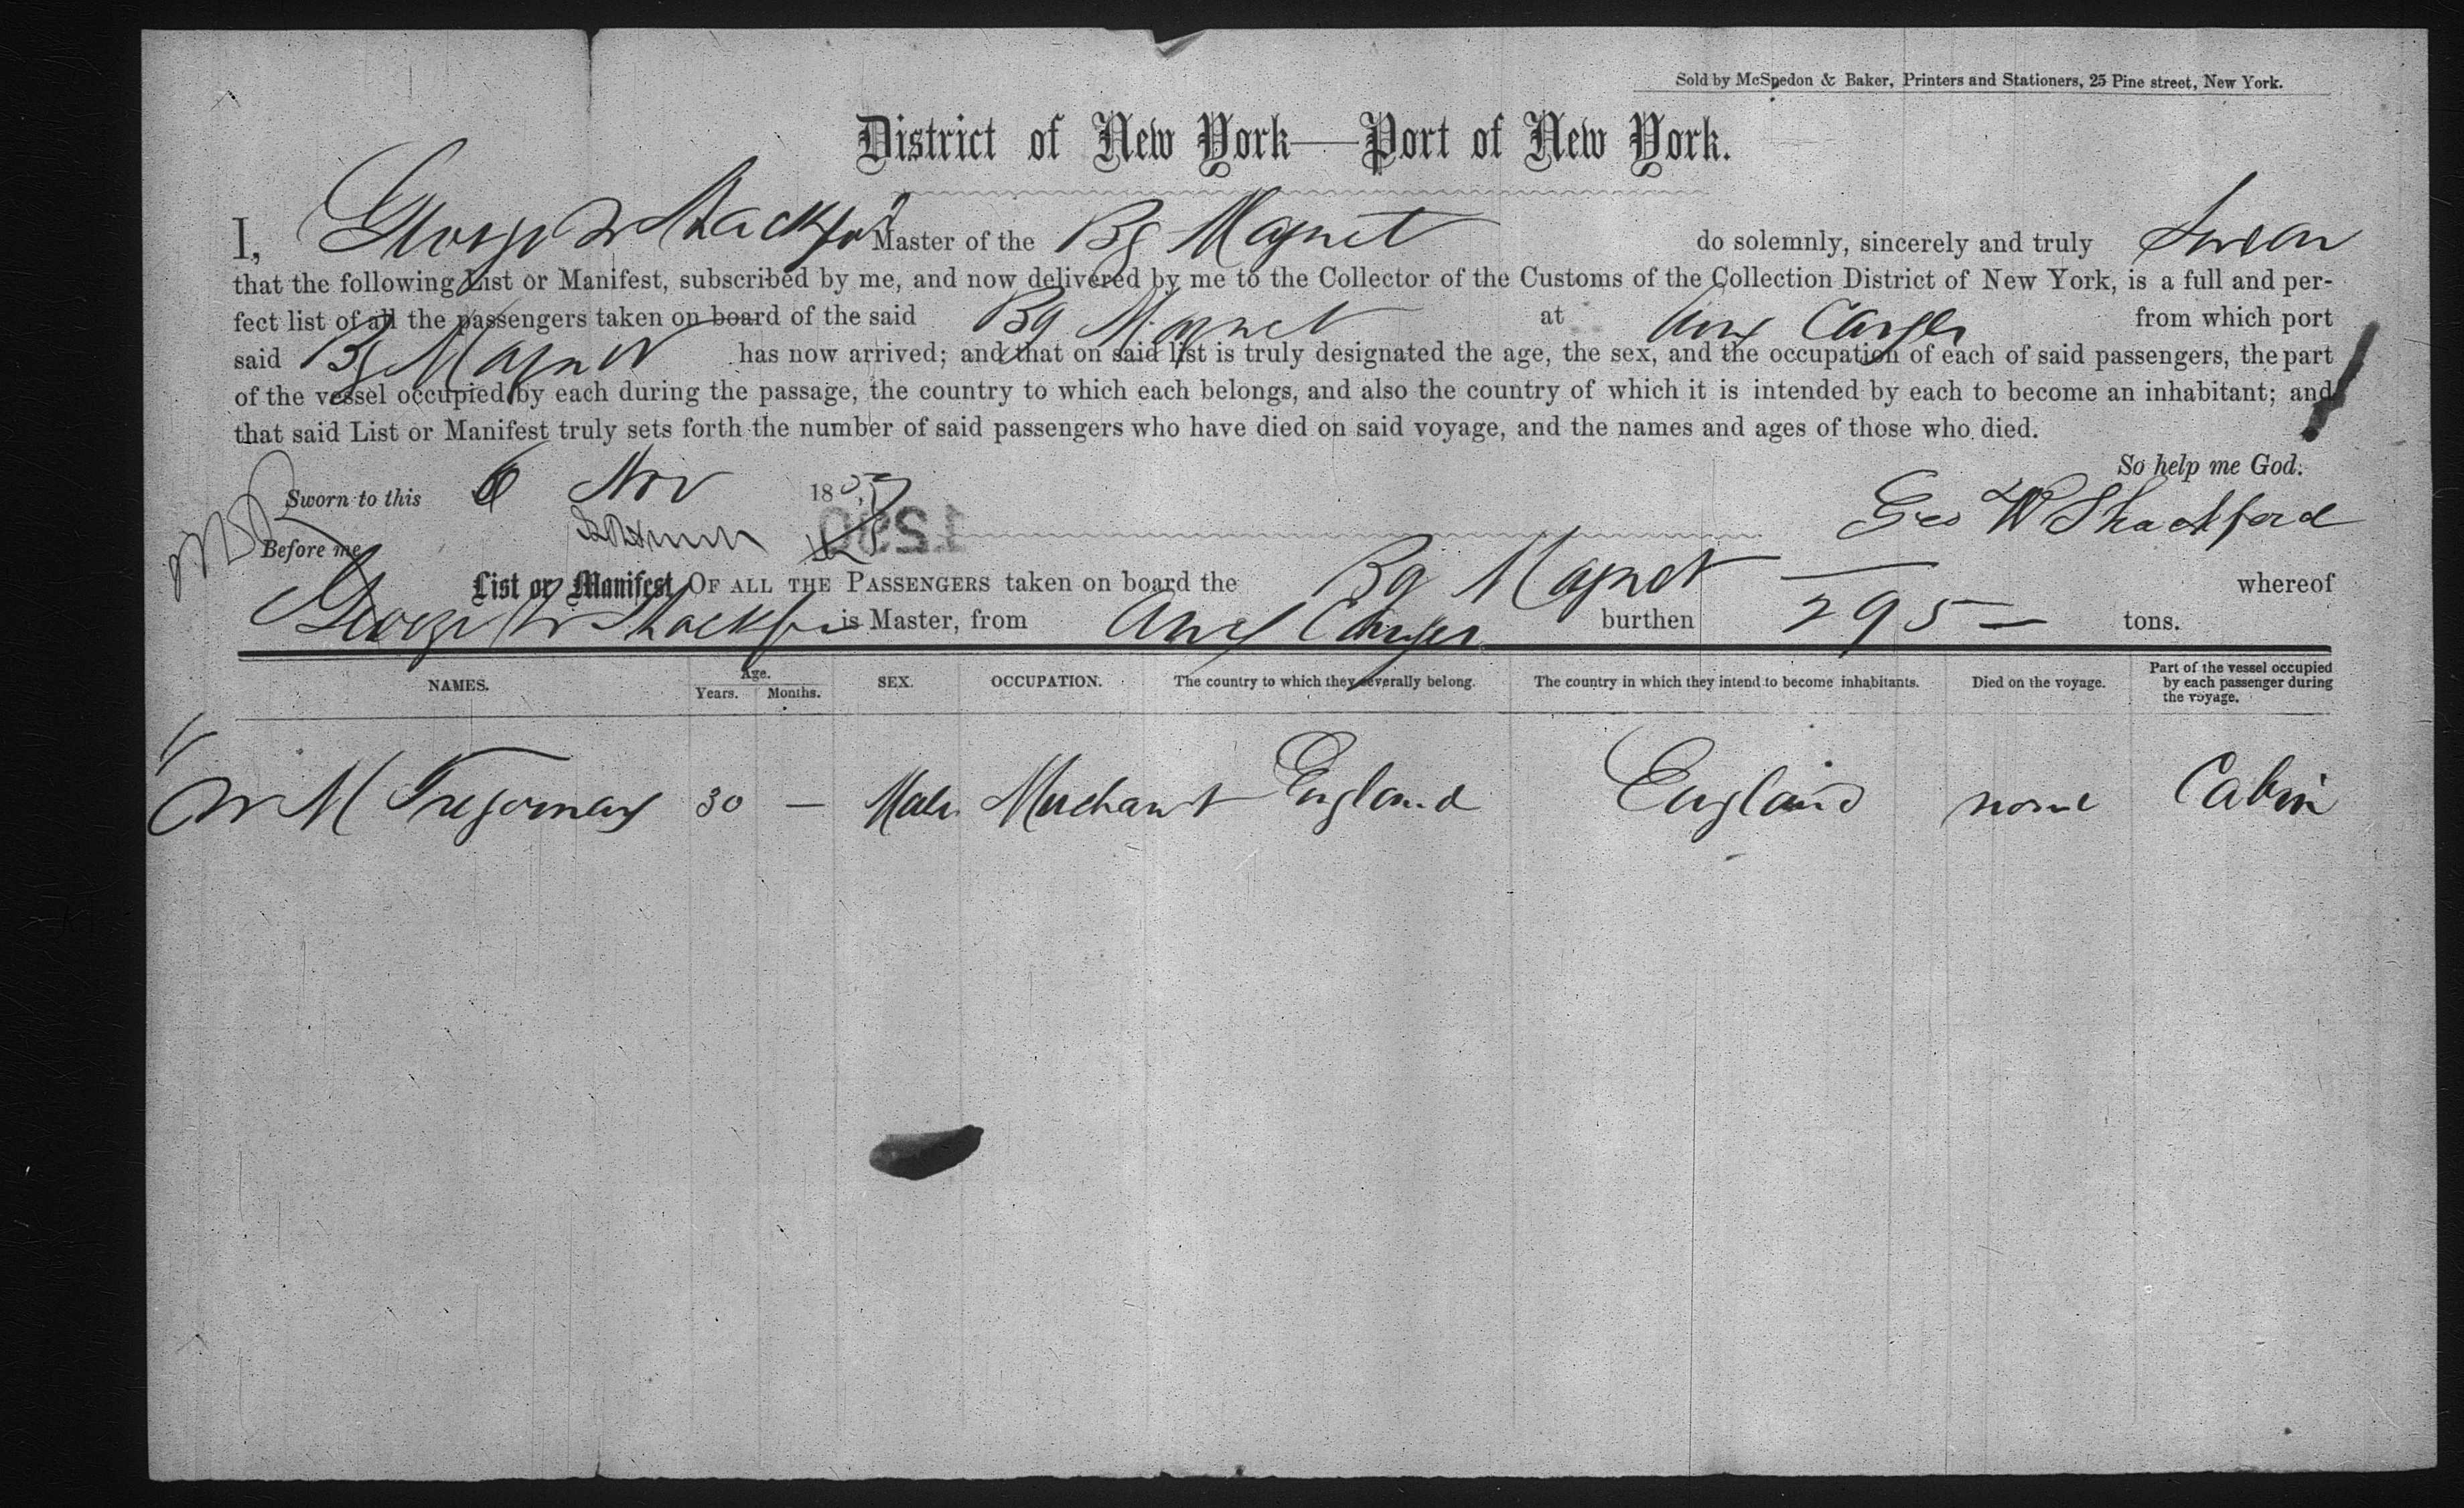 Sold by McSpedon & Baker, Printers and Stationers, 25 Pine street, New York.
District of New York—Port of New York.
I, George W Shackford Master of the Bg Magnet do solemnly, sincerely and truly Swear
that the following List or Manifest, subscribed by me, and now delivered by me to the Collector of the Customs of the Collection District of New York, is a full and per-
fect list of all the passengers taken on board of the said Bg Magnet at Aux Cayes from which port
said Bg Magnet has now arrived; and that on said list is truly designated the age, the sex, and the occupation of each of said passengers, the part
of the vessel occupied by each during the passage, the country to which each belongs, and also the country of which it is intended by each to become an inhabitant; and
that said List or Manifest truly sets forth the number of said passengers who have died on said voyage, and the names and ages of those who died.
So help me God.
Sworn to this 6 Nov 185
Geo W Shackford
Before me
List or Manifest OF ALL THE PASSENGERS taken on board the Bg Magnet whereof
George W Shackford is Master, from Aux Cayes burthen 295 tons.
NAMES. Age. Years. Months. SEX. OCCUPATION. The country to which they severally belong. The country in which they intend to become inhabitants. Died on the voyage. Part of the vessel occupied by each passenger during the voyage.
W M 30 — Male Merchant England England none Cabin